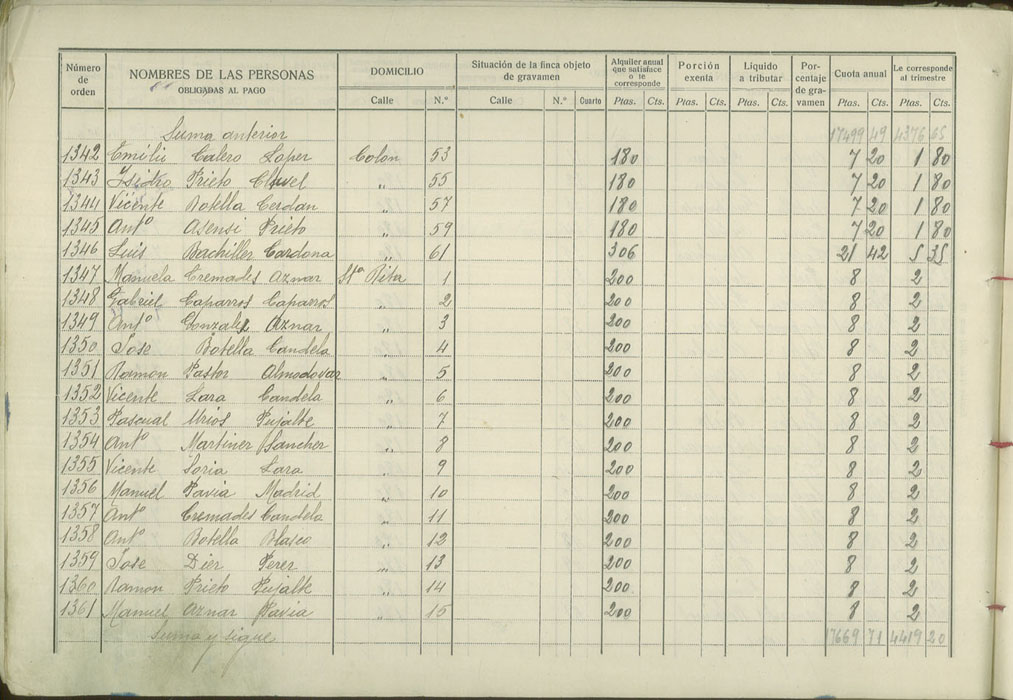 Número de orden | NOMBRES DE LAS PERSONAS OBLIGADAS AL PAGO | DOMICILIO | Situación de la finca objeto de gravamen | Alquiler anual que satisface o le corresponde | Porción exenta | Líquido a tributar | Por-centaje de gra-vamen | Cuota anual | Le corresponde al trimestre
Calle | N.º | Calle | N.º | Cuarto | Ptas. | Cts. | Ptas. | Cts. | Ptas. | Cts. | Ptas. | Cts. | Ptas. | Cts.
Suma anterior 17499 49 4376 65
1342 Emilio Calero Lopez Colon 53 180 7 20 1 80
1343 Isidro Prieto Clavel " 55 180 7 20 1 80
1344 Vicente Botella Cerdan " 57 180 7 20 1 80
1345 Antº Asensi Prieto " 59 180 7 20 1 80
1346 Luis Bachiller Cardona " 61 306 21 42 5 35
1347 Manuela Cremades Aznar Stª Rita 1 200 8 2
1348 Gabriel Caparros Caparros " 2 200 8 2
1349 Antº Gonzalez Aznar " 3 200 8 2
1350 Jose Botella Candela " 4 200 8 2
1351 Ramon Pastor Almodovar " 5 200 8 2
1352 Vicente Lara Candela " 6 200 8 2
1353 Pascual Urios Pujalte " 7 200 8 2
1354 Antº Martinez Sanchez " 8 200 8 2
1355 Vicente Soria Lara " 9 200 8 2
1356 Manuel Pavia Madrid " 10 200 8 2
1357 Antº Cremades Candela " 11 200 8 2
1358 Antº Botella Blasco " 12 200 8 2
1359 Jose Diez Perez " 13 200 8 2
1360 Ramon Prieto Pujalte " 14 200 8 2
1361 Manuel Aznar Pavia " 15 200 8 2
Suma y sigue 17669 71 4419 20